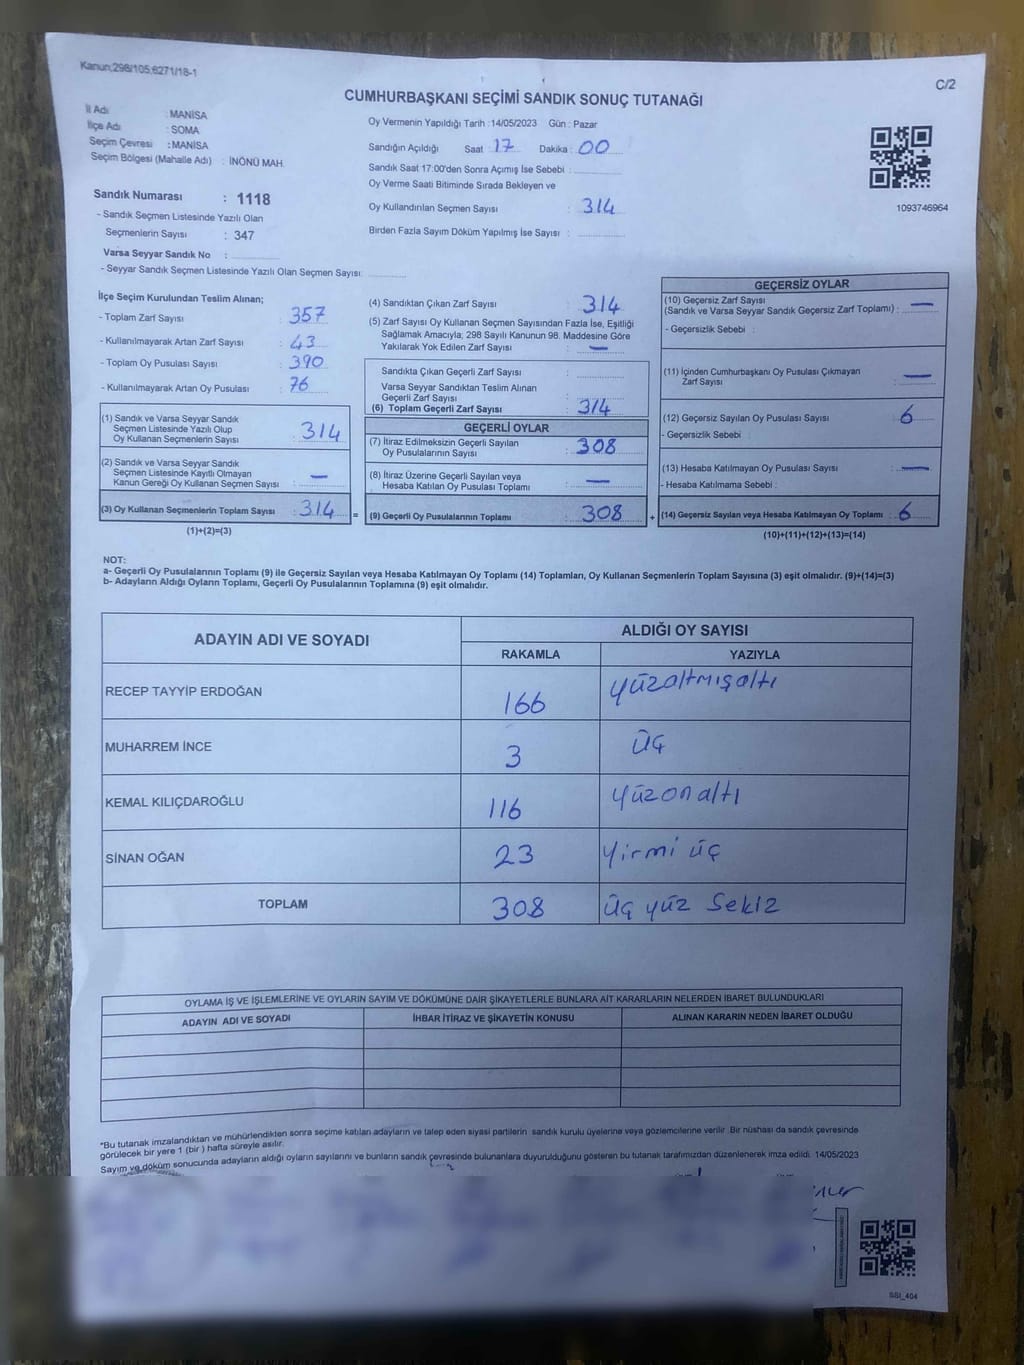 Kanun;298/105;6271/18-1
C/2
CUMHURBAŞKANI SEÇİMİ SANDIK SONUÇ TUTANAĞI
İl Adı : MANİSA
İlçe Adı : SOMA
Seçim Çevresi : MANİSA
Seçim Bölgesi (Mahalle Adı) : İNÖNÜ MAH.
Oy Vermenin Yapıldığı Tarih :14/05/2023 Gün : Pazar
Sandığın Açıldığı Saat : 17 Dakika : 00
Sandık Saat 17:00'den Sonra Açımış İse Sebebi :
Oy Verme Saati Bitiminde Sırada Bekleyen ve
Oy Kullandırılan Seçmen Sayısı : 314
Birden Fazla Sayım Döküm Yapılmış İse Sayısı :
1093746964
Sandık Numarası : 1118
- Sandık Seçmen Listesinde Yazılı Olan
Seçmenlerin Sayısı : 347
Varsa Seyyar Sandık No :
- Seyyar Sandık Seçmen Listesinde Yazılı Olan Seçmen Sayısı:
İlçe Seçim Kurulundan Teslim Alınan;
- Toplam Zarf Sayısı : 357
- Kullanılmayarak Artan Zarf Sayısı : 43
- Toplam Oy Pusulası Sayısı : 390
- Kullanılmayarak Artan Oy Pusulası : 76
(1) Sandık ve Varsa Seyyar Sandık
Seçmen Listesinde Yazılı Olup
Oy Kullanan Seçmenlerin Sayısı : 314
(2) Sandık ve Varsa Seyyar Sandık
Seçmen Listesinde Kayıtlı Olmayan
Kanun Gereği Oy Kullanan Seçmen Sayısı : —
(3) Oy Kullanan Seçmenlerin Toplam Sayısı : 314 =
(1)+(2)=(3)
(4) Sandıktan Çıkan Zarf Sayısı : 314
(5) Zarf Sayısı Oy Kullanan Seçmen Sayısından Fazla İse, Eşitliği
Sağlamak Amacıyla; 298 Sayılı Kanunun 98. Maddesine Göre
Yakılarak Yok Edilen Zarf Sayısı : —
Sandıkta Çıkan Geçerli Zarf Sayısı :
Varsa Seyyar Sandıktan Teslim Alınan
Geçerli Zarf Sayısı :
(6) Toplam Geçerli Zarf Sayısı : 314
GEÇERLİ OYLAR
(7) İtiraz Edilmeksizin Geçerli Sayılan
Oy Pusulalarının Sayısı : 308
(8) İtiraz Üzerine Geçerli Sayılan veya
Hesaba Katılan Oy Pusulası Toplamı : —
(9) Geçerli Oy Pusulalarının Toplamı : 308 +
GEÇERSİZ OYLAR
(10) Geçersiz Zarf Sayısı
(Sandık ve Varsa Seyyar Sandık Geçersiz Zarf Toplamı) : —
- Geçersizlik Sebebi :
(11) İçinden Cumhurbaşkanı Oy Pusulası Çıkmayan
Zarf Sayısı : —
(12) Geçersiz Sayılan Oy Pusulası Sayısı : 6
- Geçersizlik Sebebi :
(13) Hesaba Katılmayan Oy Pusulası Sayısı : —
- Hesaba Katılmama Sebebi :
(14) Geçersiz Sayılan veya Hesaba Katılmayan Oy Toplamı : 6
(10)+(11)+(12)+(13)=(14)
NOT:
a- Geçerli Oy Pusulalarının Toplamı (9) ile Geçersiz Sayılan veya Hesaba Katılmayan Oy Toplamı (14) Toplamları, Oy Kullanan Seçmenlerin Toplam Sayısına (3) eşit olmalıdır. (9)+(14)=(3)
b- Adayların Aldığı Oyların Toplamı, Geçerli Oy Pusulalarının Toplamına (9) eşit olmalıdır.
ADAYIN ADI VE SOYADI
ALDIĞI OY SAYISI
RAKAMLA YAZIYLA
RECEP TAYYİP ERDOĞAN 166 yüzaltmışaltı
MUHARREM İNCE 3 üç
KEMAL KILIÇDAROĞLU 116 yüzonaltı
SİNAN OĞAN 23 yirmi üç
TOPLAM 308 üç yüz sekiz
OYLAMA İŞ VE İŞLEMLERİNE VE OYLARIN SAYIM VE DÖKÜMÜNE DAİR ŞİKAYETLERLE BUNLARA AİT KARARLARIN NELERDEN İBARET BULUNDUKLARI
ADAYIN ADI VE SOYADI İHBAR İTİRAZ VE ŞİKAYETİN KONUSU ALINAN KARARIN NEDEN İBARET OLDUĞU
*Bu tutanak imzalandıktan ve mühürlendikten sonra seçime katılan adayların ve talep eden siyasi partilerin sandık kurulu üyelerine veya gözlemcilerine verilir. Bir nüshası da sandık çevresinde
görülecek bir yere 1 (bir ) hafta süreyle asılır.
Sayım ve döküm sonucunda adayların aldığı oyların sayılarını ve bunların sandık çevresinde bulunanlara duyurulduğunu gösteren bu tutanak tarafımızdan düzenlenerek imza edildi. 14/05/2023
SSI_404